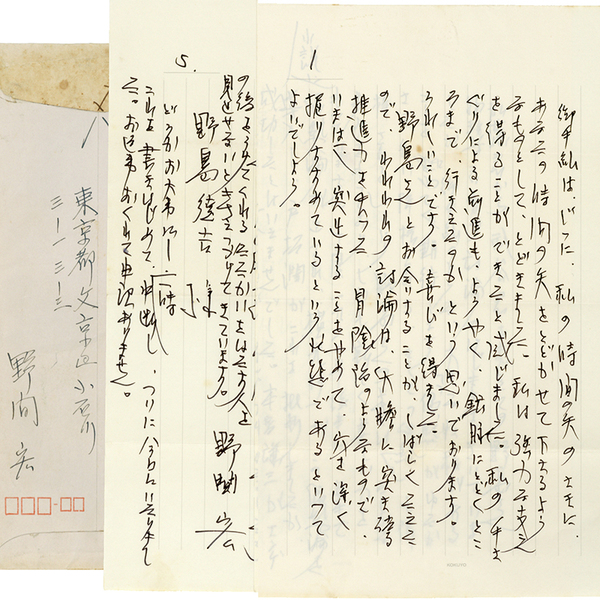 1
御手紙は、じつに、私の時間の矢のさきに、
あなたの時間の矢をとどかせて下さるよう
なものとして、とどきました。私は強力な支え
を得ることができたと感じました。私の手さ
ぐりによる前進も、ようやく、鉱脈にとどくとこ
ろまで、行きえたのか、という思いであります。
うれしいことです。喜びを得ました。
野島さんとお会いすることが、しばらくとだえた
ので、われわれの討論は、大膽に突き破る
推進力を失って、冒険
いまは、突進することをやめて、穴を深く
掘りすすめているという状態であるといって
よいでしょう。
5.
見せないとき
野間宏
野島徳吉様
どうかお大事に
これを書きはじめて、中断し、ついに今日にいたりまし
た。お返事おくれて申訳ありません。
東京都文京区小石川
三-一三-三
野間宏